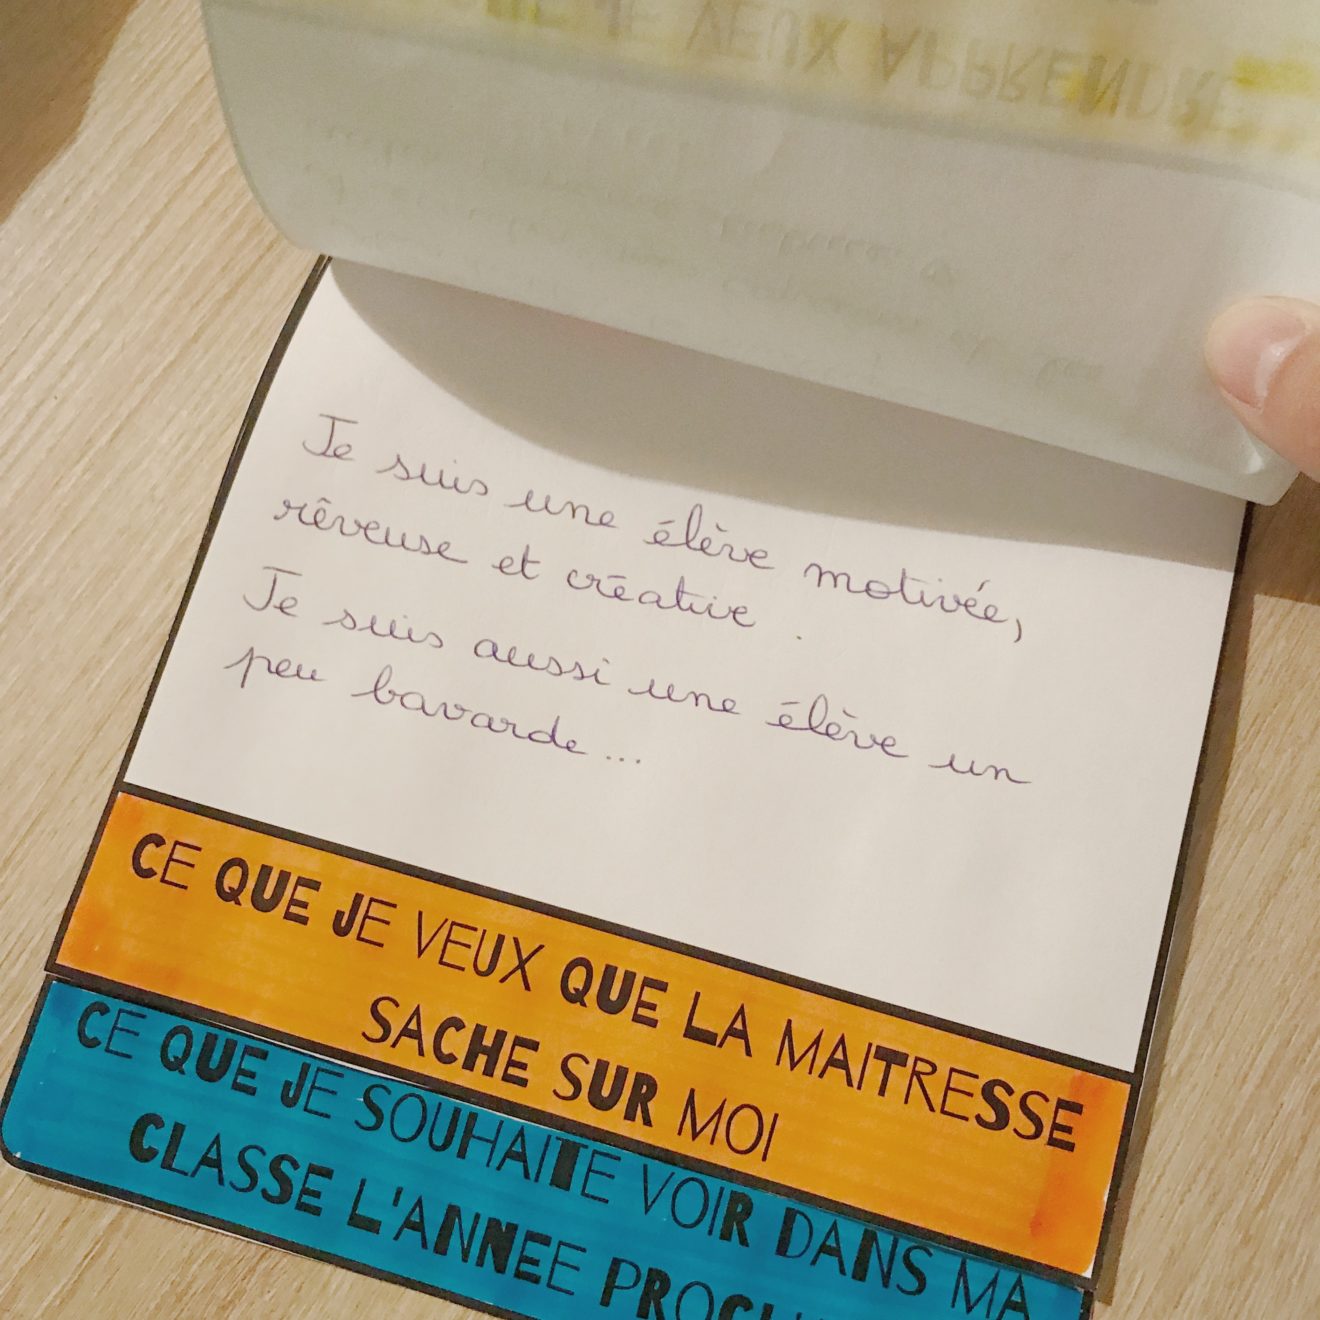 VEUX APPRENDRE
Je suis une élève motivée,
rêveuse et créative .
Je suis aussi une élève un
peu bavarde ...
CE QUE JE VEUX QUE LA MAITRESSE
SACHE SUR MOI
CE QUE JE SOUHAITE VOIR DANS MA
CLASSE L'ANNEE